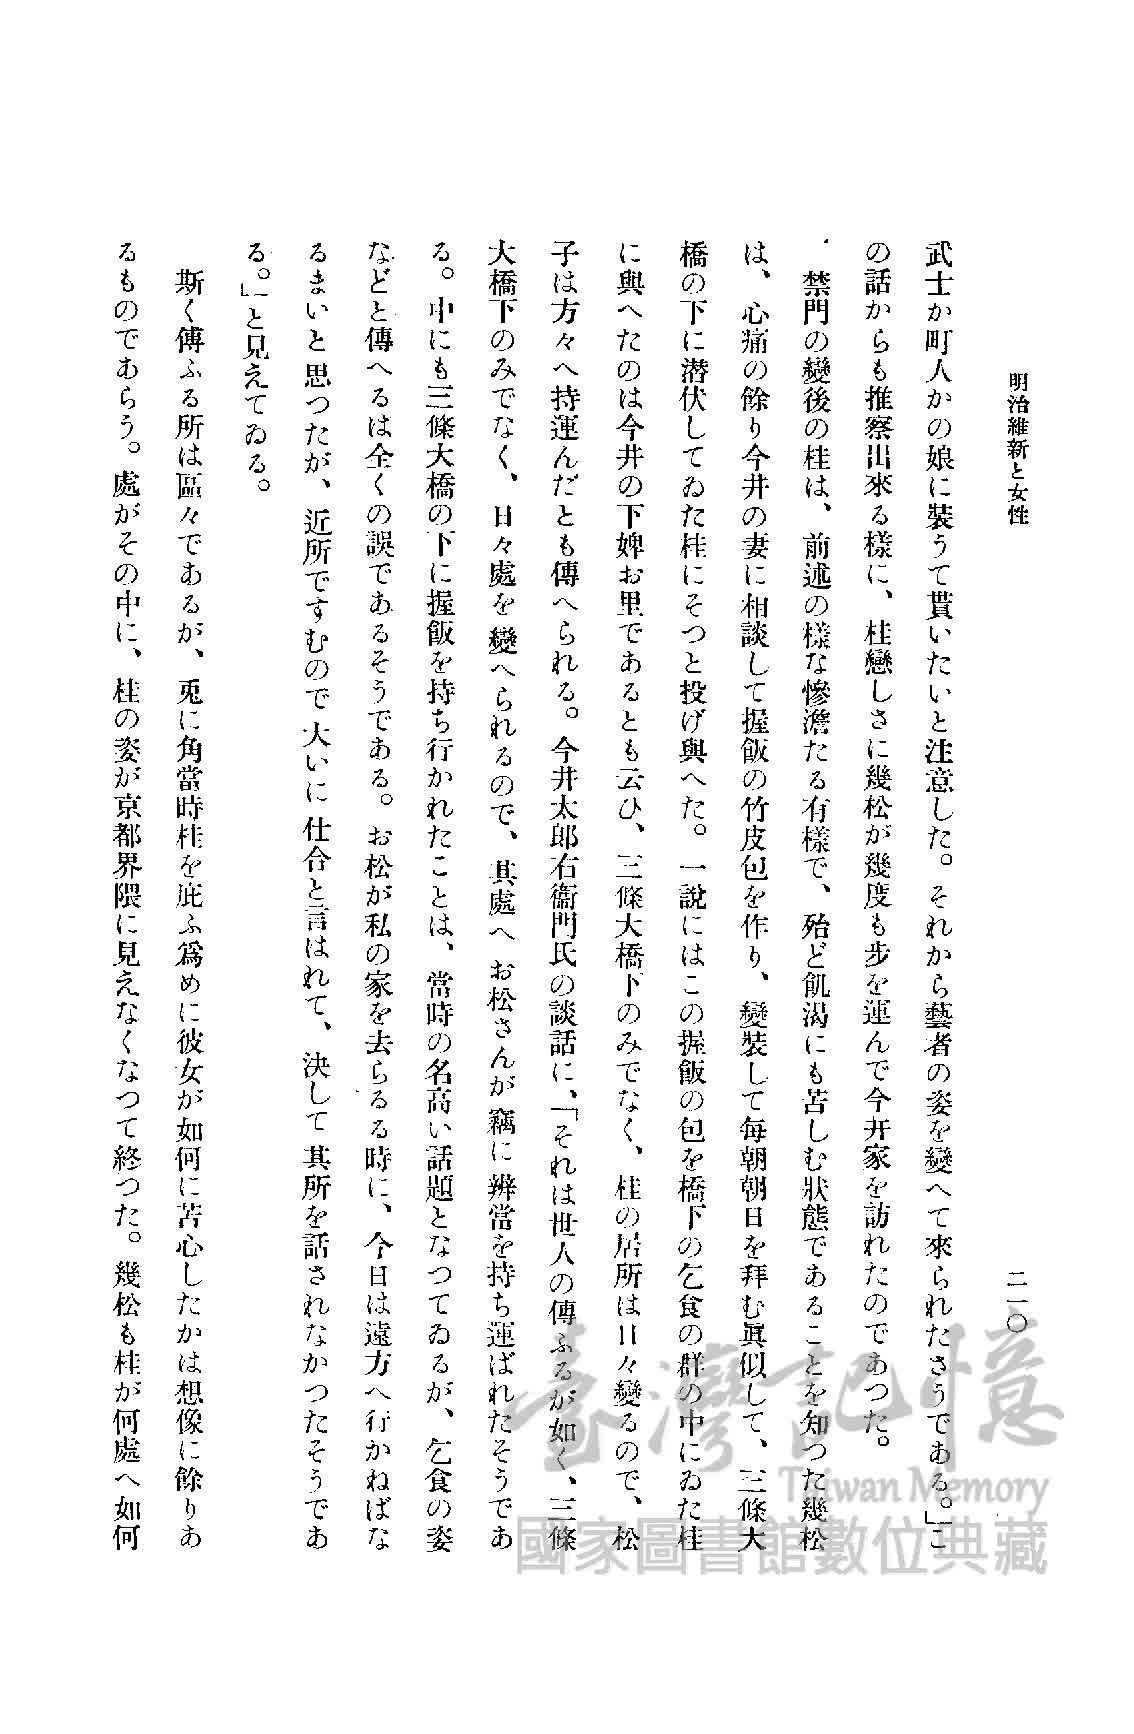 明治維新と女性
二一〇
武士か町人かの娘に裝うて貰いたいと注意した。それから藝者の姿を變へて來られたさうである。」こ
の話からも推察出來る樣に、桂戀しさに幾松が幾度も步を運んで今井家を訪れたのであつた。
禁門の變後の桂は、前述の樣な慘澹たる有樣で、殆ど飢渴にも苦しむ狀態であることを知つた幾松
は、心痛の餘り今井の妻に相談して握飯の竹皮包を作り、變裝して每朝朝日を拜む眞似して、三條大
橋の下に潜伏してゐた桂にそつと投げ與へた。一說にはこの握飯の包を橋下の乞食の群の中にゐた桂
に與へたのは今井の下婢お里であるとも云ひ、三條大橋下のみでなく、桂の居所は日々變るので、松
子は方々へ持運んだとも傳へられる。今井太郎右衞門氏の談話に、「それは世人の傳ふるが如く、三條
大橋下のみでなく、日々處を變へられるので、其處へお松さんが竊に辨當を持ち運ばれたそうであ
る。中にも三條大橋の下に握飯を持ち行かれたことは、當時の名高い話題となつてゐるが、乞食の姿
などと傳へるは全くの誤であるそうである。お松が私の家を去らるる時に、今日は遠方へ行かねばな
るまいと思つたが、近所ですむので大いに仕合と言はれて、決して其所を話されなかつたそうであ
る。」と見えてゐる。
斯く傳ふる所は區々であるが、兎に角當時桂を庇ふ爲めに彼女が如何に苦心したかは想像に餘りあ
るものであらう。處がその中に、桂の姿が京都界隈に見えなくなつて終つた。幾松も桂が何處へ如何
臺灣記憶
Taiwan Memory
國家圖書館數位典藏